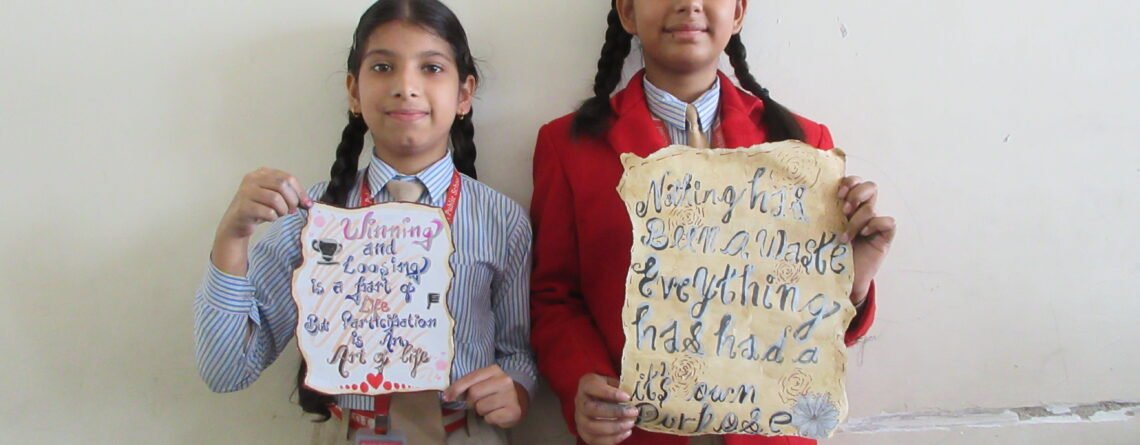 Winning
and
Loosing
is a part of
Life
But Participation
is An
Art of life
Nothing has
Been a waste
Everything
has had a
it's own
Purpose
Public School